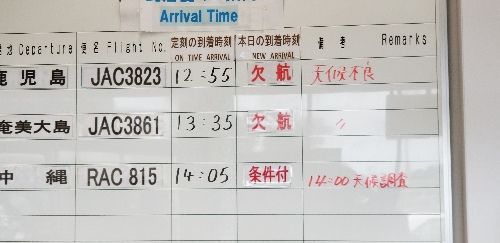 Arrival Time
Departure 便名 Flight No. 定刻の到着時刻 ON TIME ARRIVAL 本日の到着時刻 NEW ARRIVAL 備考 Remarks
鹿児島 JAC3823 12:55 欠航 天候不良
奄美大島 JAC3861 13:35 欠航 〃
沖縄 RAC 815 14:05 条件付 14:00 天候調査